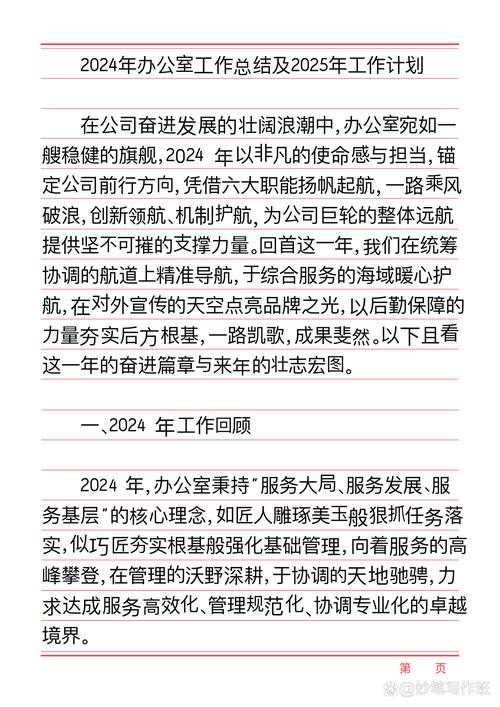 2024年办公室工作总结及2025年工作计划
在公司奋进发展的壮阔浪潮中,办公室宛如一
艘稳健的旗舰,2024 年以非凡的使命感与担当,锚
定公司前行方向,凭借六大职能扬帆起航,一路乘风
破浪,创新领航、机制护航,为公司巨轮的整体远航
提供坚不可摧的支撑力量。回首这一年,我们在统筹
协调的航道上精准导航,于综合服务的海域暖心护
航,在对外宣传的天空点亮品牌之光,以后勤保障的
力量夯实后方根基,一路凯歌,成果斐然。以下且看
这一年的奋进篇章与来年的壮志宏图。
一、2024 年工作回顾
2024 年,办公室秉持"服务大局、服务发展、服
务基层"的核心理念,如匠人雕琢美玉般狠抓任务落
实,似巧匠夯实根基般强化基础管理,向着服务的高
峰攀登,在管理的沃野深耕,于协调的天地驰骋,力
求达成服务高效化、管理规范化、协调专业化的卓越
境界。
第 页
@妙笔写作班